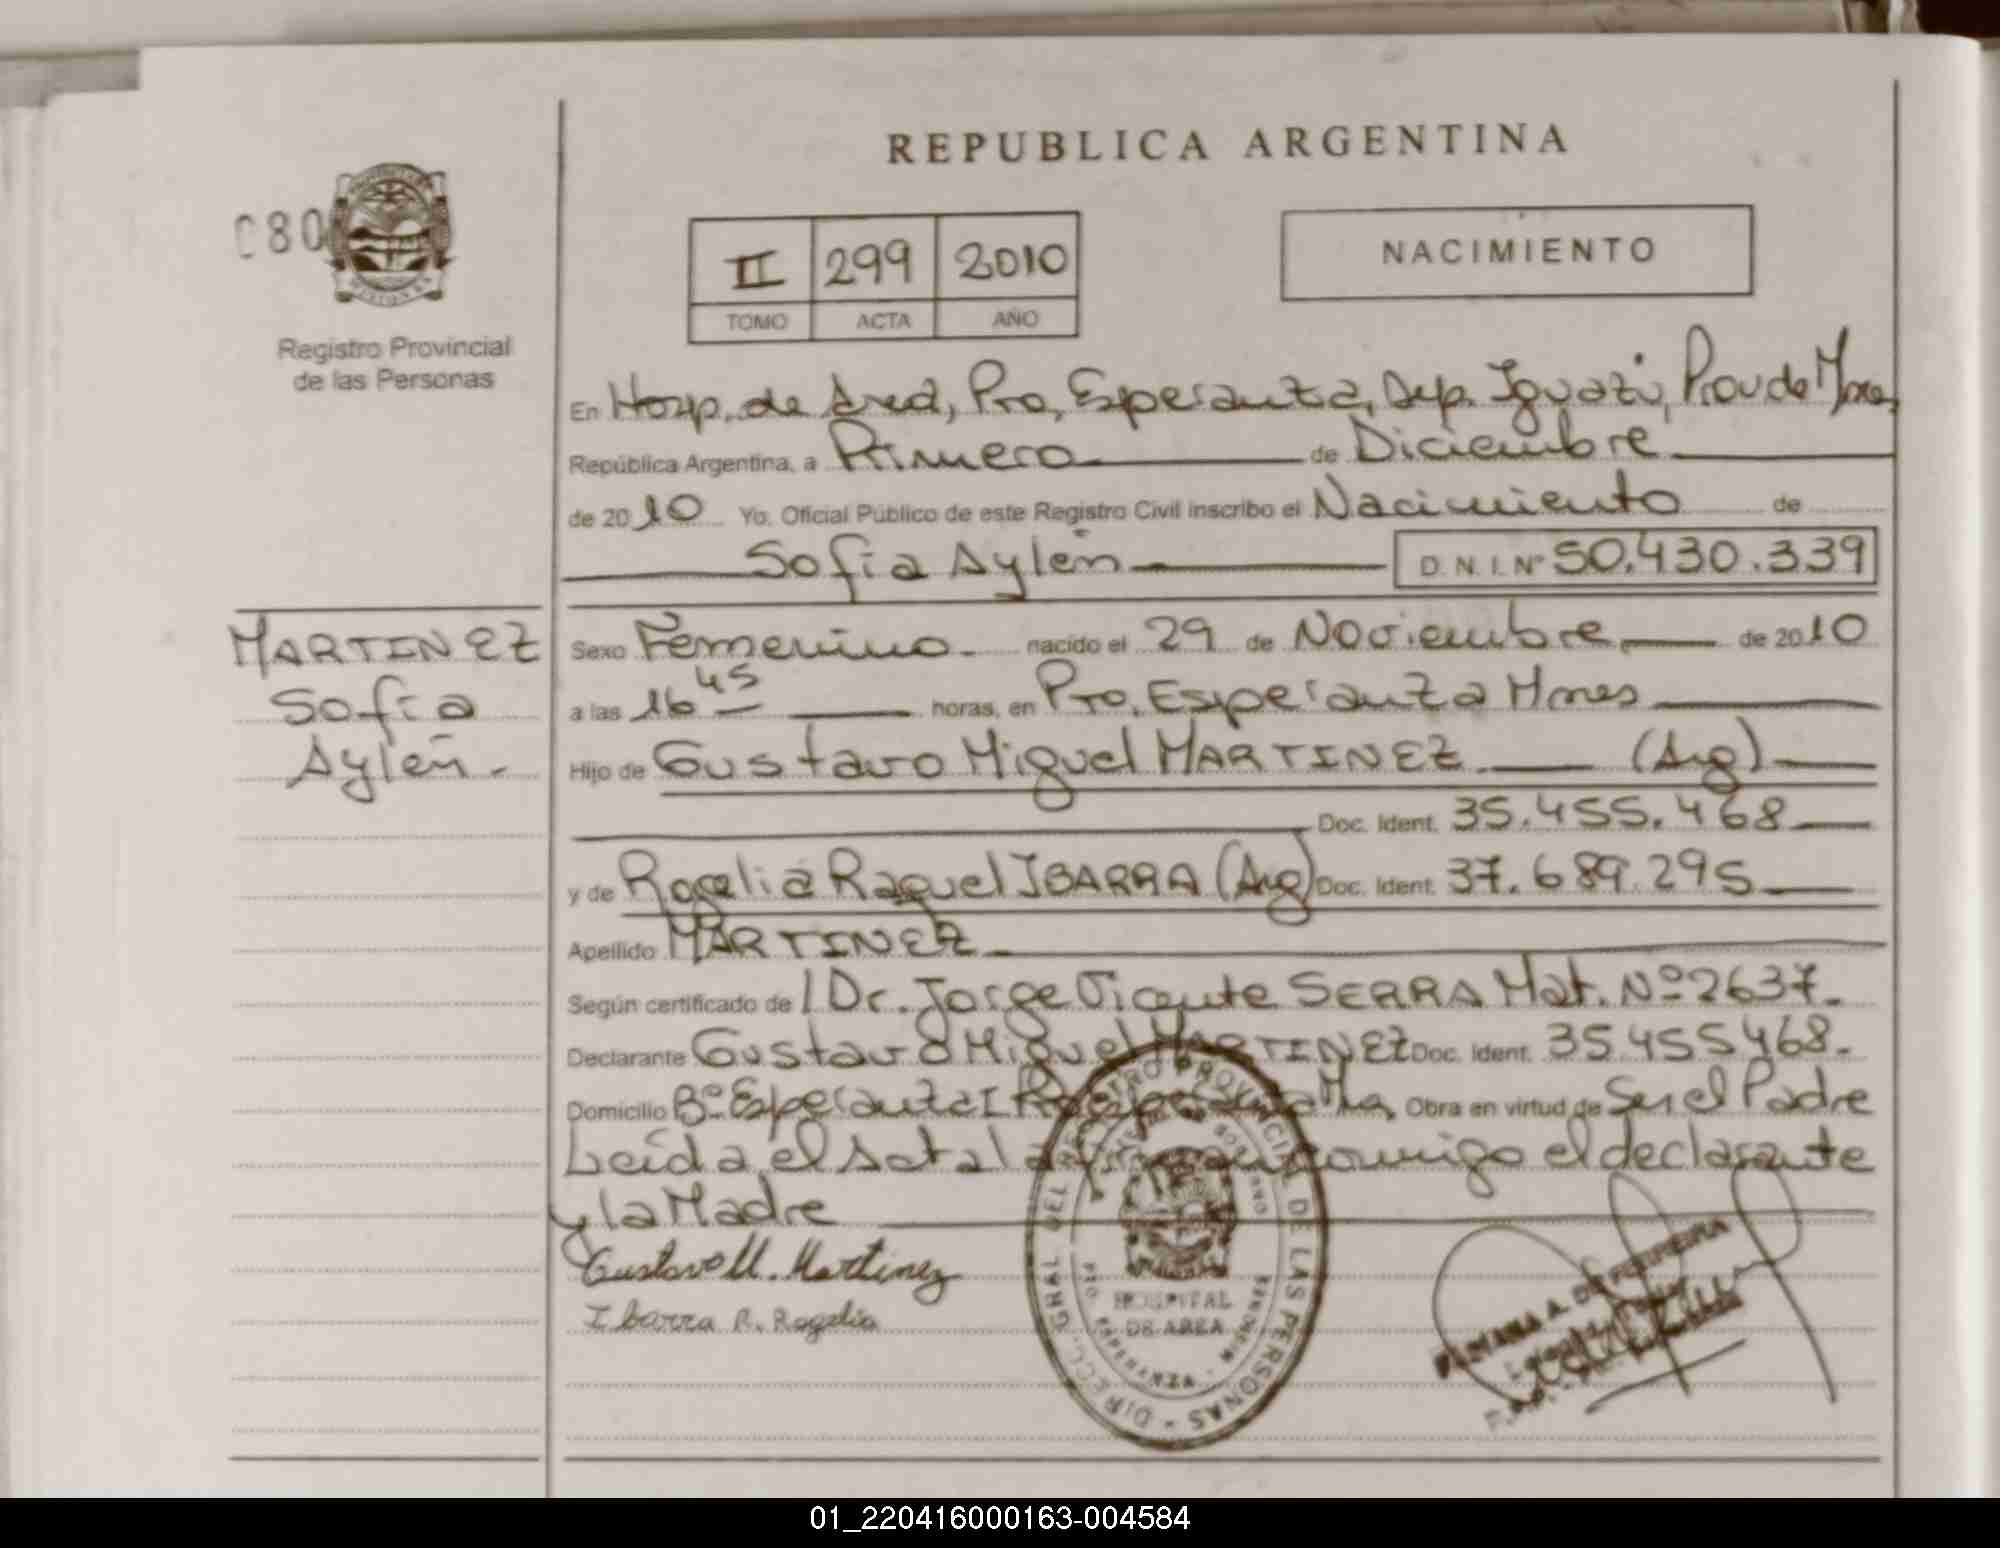 REPUBLICA ARGENTINA
C80
MISIONES
Registro Provincial
de las Personas
II 299 2010
TOMO ACTA AÑO
NACIMIENTO
En Hosp. de Area, Pto, Esperanza, Dep. Iguazú, Prov de Mnes,
República Argentina, a Primero de Diciembre
de 2010 Yo. Oficial Público de este Registro Civil inscribo el Nacimiento de
Sofia Aylén D.N.I.Nº 50.430.339
MARTINEZ
Sofia
Aylén.
Sexo Femenino. nacido el 29 de Noviembre de 2010
a las 16 45 horas, en Pto, Esperanza Mnes
Hijo de Gustavo Miguel MARTINEZ (Arg)
Doc. Ident. 35.455.468
y de Rogelia Raquel IBARRA (Arg) Doc. Ident. 37.689.295
Apellido MARTINEZ
Según certificado de Dr. Jorge Vicente SERRA Mat. Nº 2637.
Declarante Gustavo Miguel MARTINEZ Doc. Ident. 35455468.
Domicilio Bº Esperanza I Obra en virtud de Ser el Padre
Leída el Acta la conmigo el declarante
y la Madre
Gustavo M. Martinez
Ibarra R. Rogelia
DIRECC. GRAL. DEL REGISTRO PROVINCIAL DE LAS PERSONAS
HOSPITAL
DE AREA
PTO. ESPERANZA - MISIONES
01_220416000163-004584